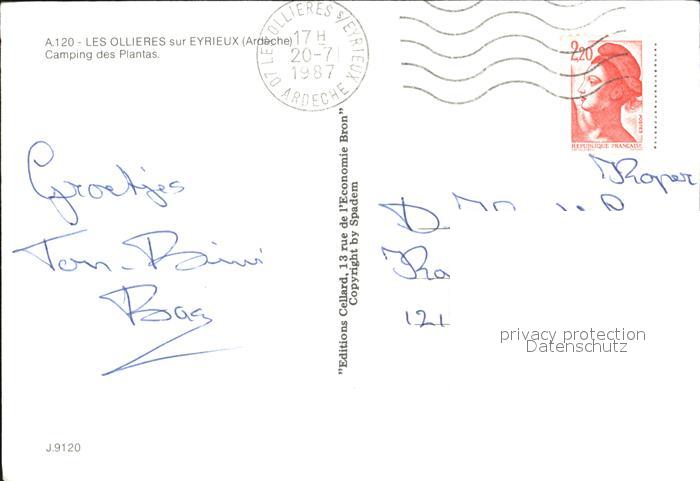 A.120 - LES OLLIERES sur EYRIEUX (Ardèche)
Camping des Plantas.
07 LES OLLIERES S/EYRIEUX
17 H
20-7
1987
ARDECHE
2,20
POSTES
REPUBLIQUE FRANÇAISE
Groetjes
Ton - Bini
Bas
"Editions Cellard, 13 rue de l'Economie Bron"
Copyright by Spadem
D
Ra
121
privacy protection
Datenschutz
J.9120